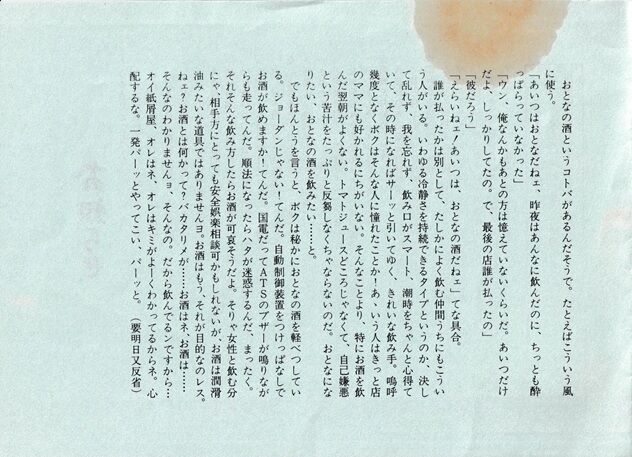 おとなの酒というコトバがあるんだそうで。たとえばこういう風
に使う。
「あいつはおとなだねェ、昨夜はあんなに飲んだのに、ちっとも酔
っぱらっていなかった」
「ウン、俺なんかもあとの方は憶えていないくらいだ。あいつだけ
だよ、しっかりしてたの。で、最後の店誰が払ったの」
「彼だろう」
「えらいねェ！あいつは、おとなの酒だねェ」てな具合。
誰が払ったかは別として、たしかによく飲む仲間うちにもこうい
う人がいる。いわゆる冷静さを持続できるタイプというのか、決し
て乱れず、我を忘れず、飲み口がスマート、潮時をちゃんと心得て
いて、その時になればサーッと引いてゆく、きれいな飲み手。嗚呼
幾度となくボクはそんな人に憧れたことか！あ、いう人はきっと店
のママにも好かれるにちがいない。そんなことより、特にお酒を飲
んだ翌朝がよくない。トマトジュースどころじゃなくて、自己嫌悪
という苦汁をたっぷりと反芻しなくちゃならないのだ。おとなにな
りたい、おとなの酒を飲みたい……と。
でもほんとうを言うと、ボクは秘かにおとなの酒を軽べつしてい
る。ジョーダンじゃない！てんだ。自動制御装置をつけっぱなしで
お酒が飲めますか！てんだ。国電だってＡＴＳのブザーが鳴りなが
らも走ってんだ。順法になったらハタが迷惑するんだ、まったく。
それそんな飲み方したらお酒が可哀そうだよ。そりゃ女性と飲む分
にゃ、相手方にとっても安全娯楽相談可かもしれないが、お酒は潤滑
油みたいな道具ではありませんヨ。お酒はもう、それが目的なのレス。
ねェ？お酒とは何かって？バカタリメが……お酒はネ、お酒は……
そんなのわかりませんョ、そんなの。だから飲んでるンですから…
オイ紙屑屋、オレはネ、オレはキミがよーくわかってるからネ。心
配するな。一発パーッとやってこい、パーッと。（要明日又反省）